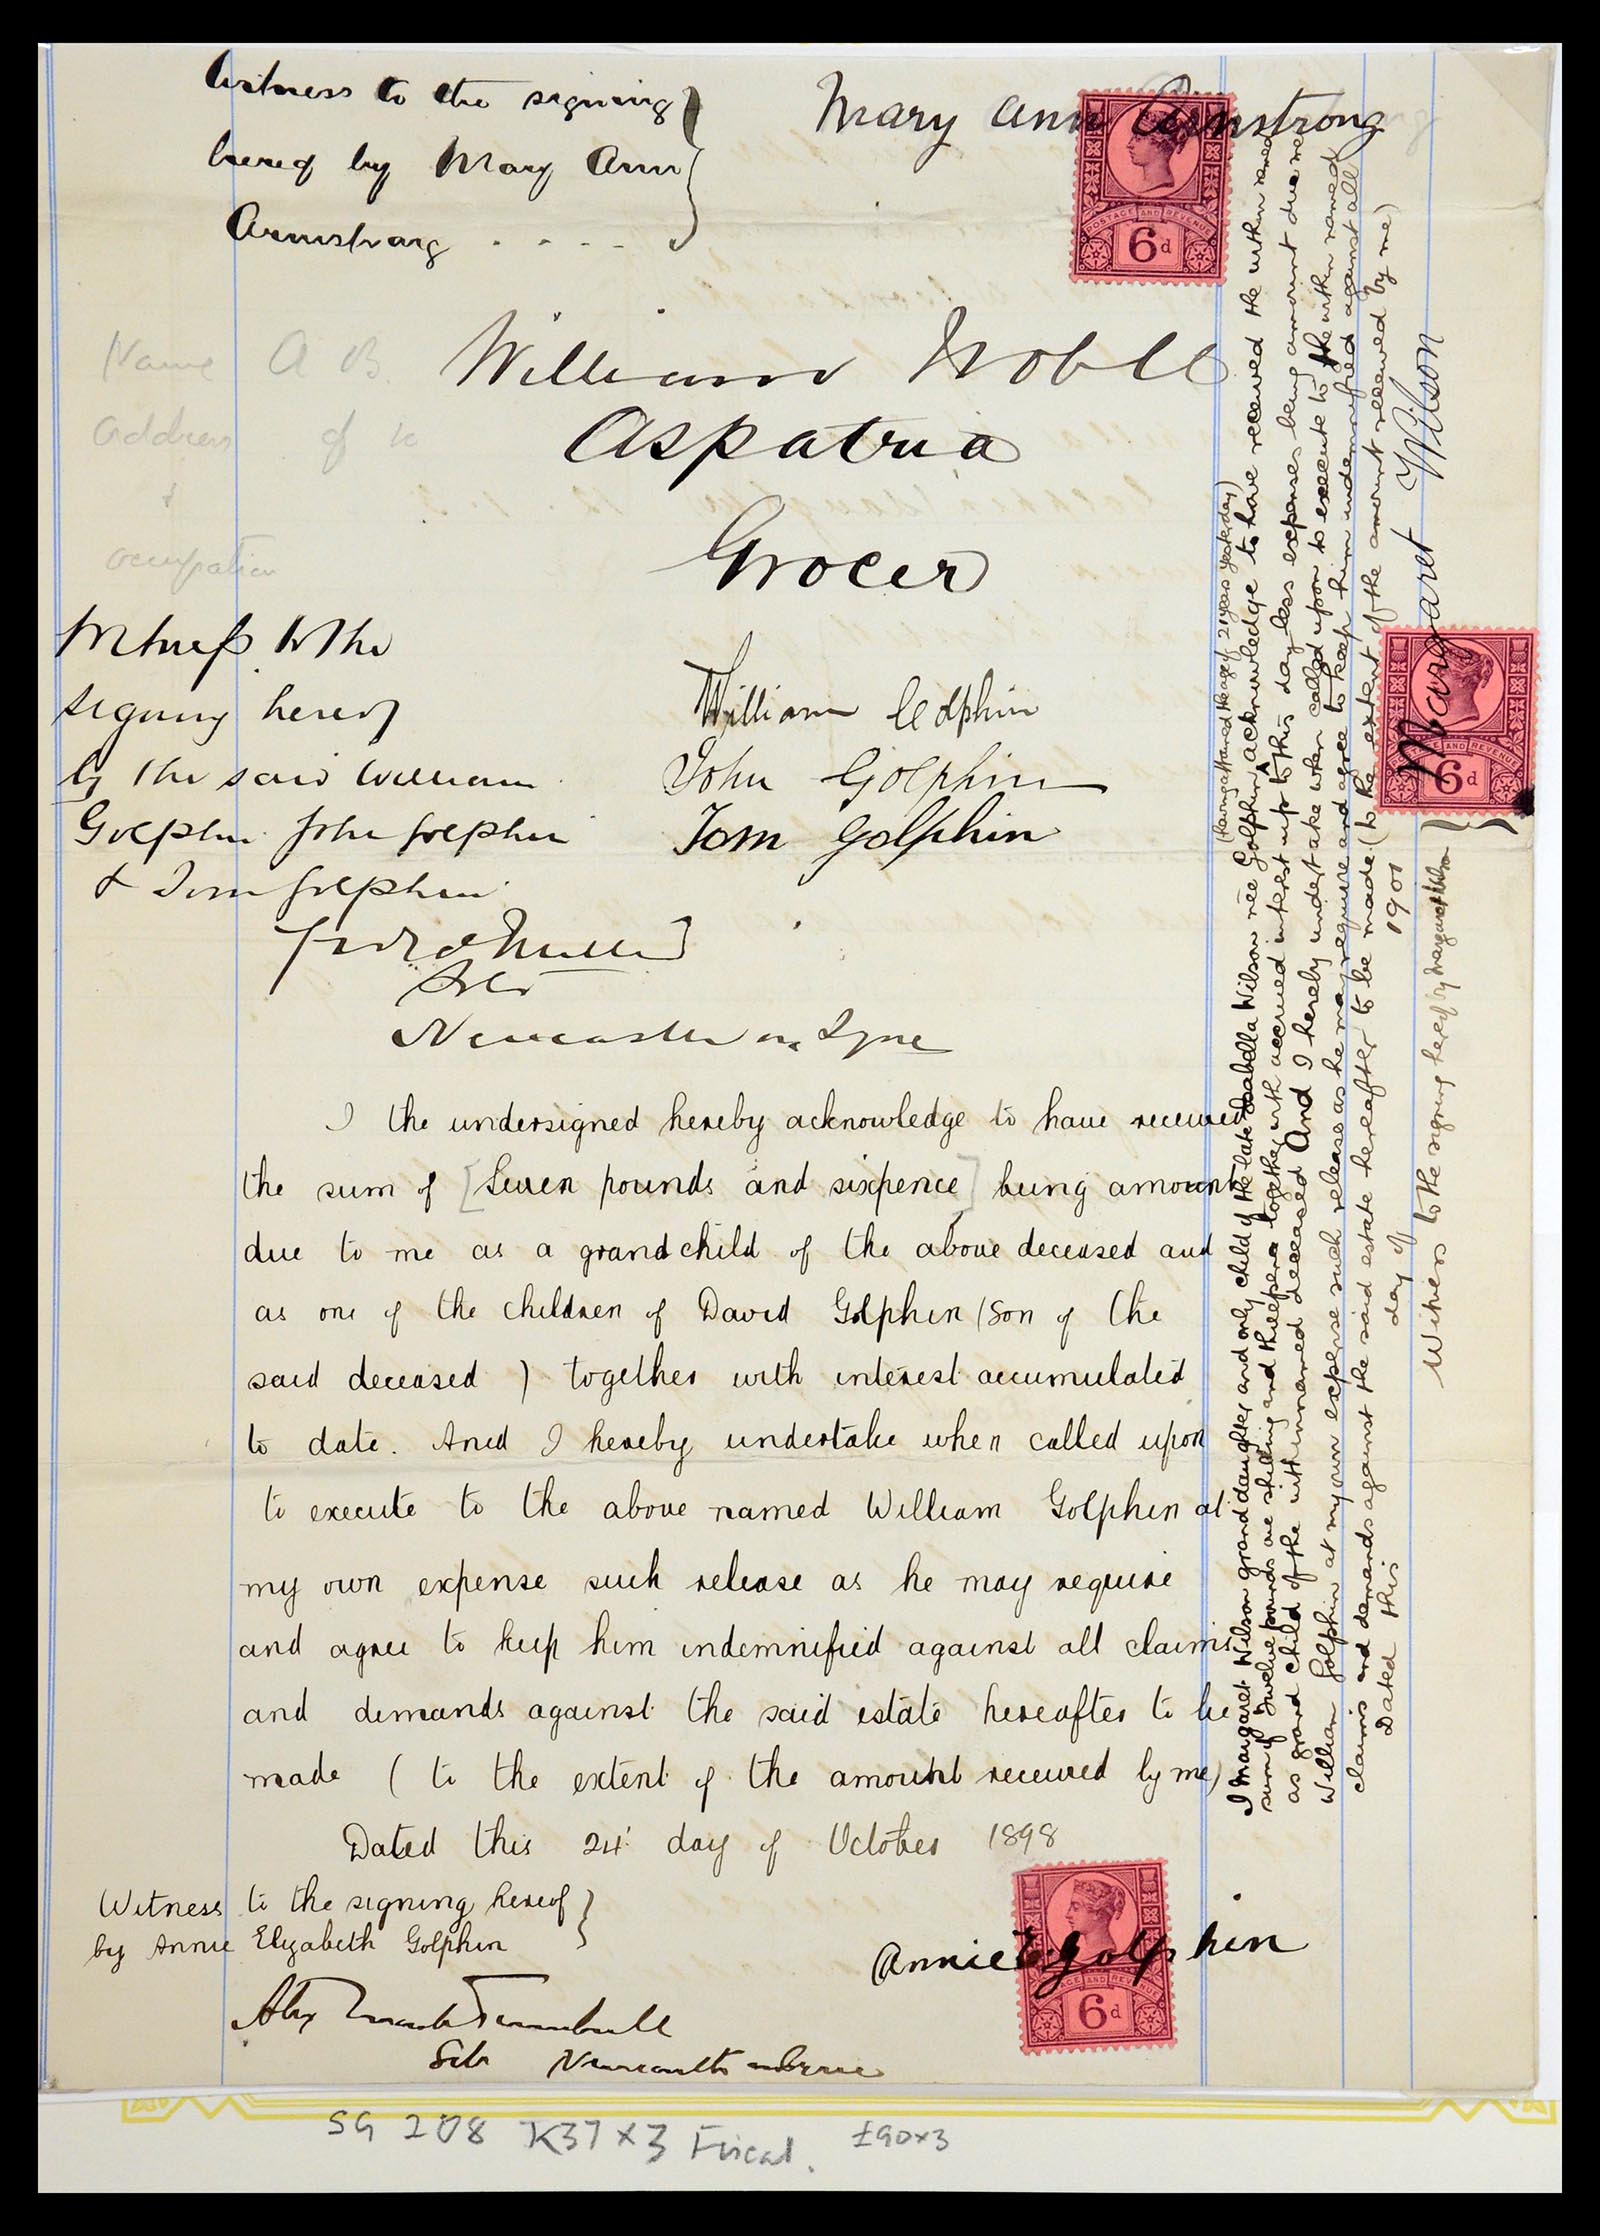 Witness to the signing
hereof by Mary Ann
Armstrong . . . . .
Mary Ann Armstrong
POSTAGE AND REVENUE
6d
Name A B
Address of &c
+
occupation
William Noble
Aspatria
Grocer
Witness to the
signing hereof
by the said William
Golphin John Golphin
& Tom Golphin
William Golphin
John Golphin
Tom Golphin
Solr
Newcastle on Tyne
I the undersigned hereby acknowledge to have received
the sum of [Seven pounds and sixpence] being amount
due to me as a grandchild of the above deceased and
as one of the children of David Golphin (son of the
said deceased) together with interest accumulated
to date. And I hereby undertake when called upon
to execute to the above named William Golphin at
my own expense such release as he may require
and agree to keep him indemnified against all claims
and demands against the said estate hereafter to be
made (to the extent of the amount received by me)
Dated this 24 day of October 1898
Witness to the signing hereof
by Annie Elizabeth Golphin
Annie E Golphin
AGE AND REVENUE
6d
Alex Turnbull
Solr Newcastle on Tyne
(having attained the age of 21 years yesterday)
I Margaret Wilson granddaughter and only child of the late Isabella Wilson née Golphin ^ acknowledge to have received the within named
sum of Twelve pounds one shilling and threepence together with accrued interest up to this day less expenses being amount due me
as grand child of the within named deceased And I hereby undertake when called upon to execute to the within named
William Golphin at my own expense such release as he may require and agree to keep him indemnified against all
claims and demands against the said estate hereafter to be made (to the extent of the amount received by me)
Dated this day of 1901
Witness to the signing hereof by Margaret Wilson }
Margaret Wilson
AGE AND REVENUE
6d
SG 208 K37 x 3 Fiscal. £90x3